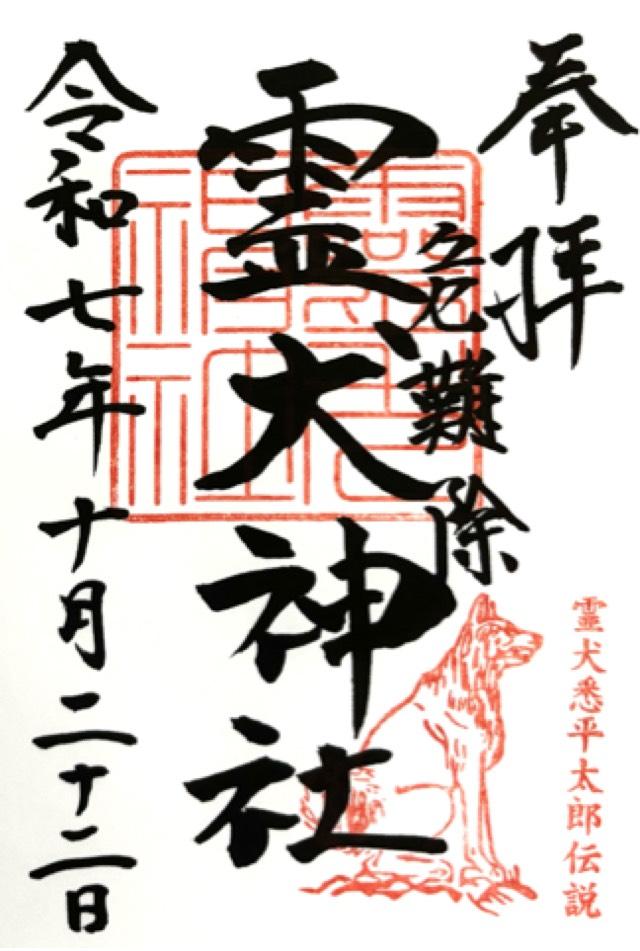 奉拝
厄難除
霊犬神社
令和七年十月二十二日
霊犬悉平太郎伝説